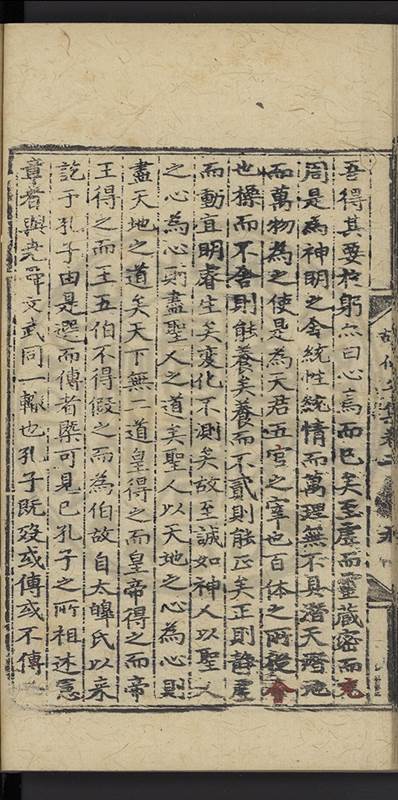 吾得其要於躬亦曰心焉而已矣至虛而靈蔵密而充
周是為神明之舍統性統情而萬理無不具潛天潛地
而萬物為之使是為天君五官之宰也百体之所從會
也操而不舍則能養矣養而不貳則能正矣正則静虛
而動直明睿生矣変化不測矣故至誠如神人以聖人
之心為心則盡聖人之道矣聖人以天地之心為心則
盡天地之道矣天下無二道皇得之而皇帝得之而帝
王得之而王五伯不得假之而為伯故自太皥氏以来
訖于孔子由是選而傳者槩可見已孔子之所祖述憲
章者與尭舜文武同一轍也孔子既歿或傳或不傳
集卷二